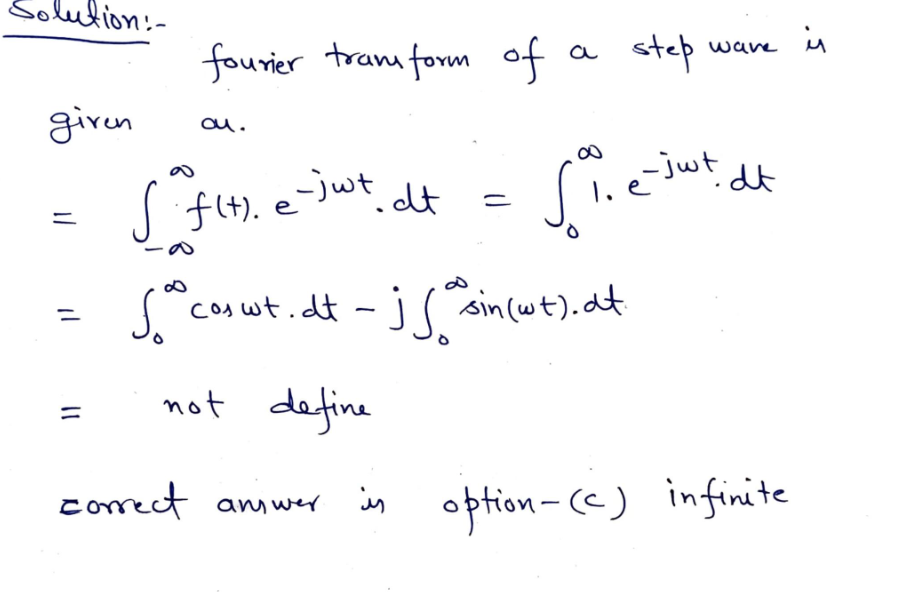 Solution:-
fourier transform of a step wave is
given as.
= ∫_{-∞}^{∞} f(t). e^{-jwt}. dt = ∫_{0}^{∞} 1. e^{-jwt}. dt
= ∫_{0}^{∞} cos wt. dt - j ∫_{0}^{∞} sin(wt). dt
= not define
correct answer is option-(c) infinite